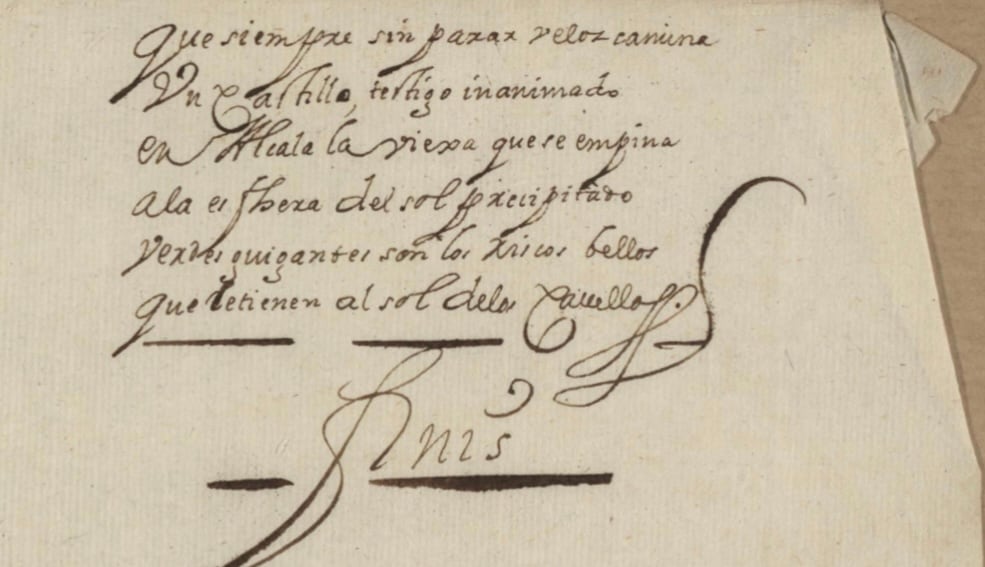 Que siempre sin parar veloz camina
Vn Castillo, testigo inanimado
en Alcala la viexa que se empina
a la esfhera del sol precipitado
verdes guigantes son los riscos bellos
que detienen al sol de los Cavellos.
Finis